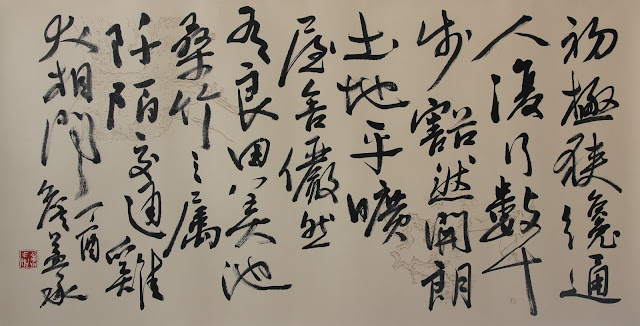 初極狹纔通
人復行數十
步豁然開朗
土地平曠
屋舍儼然
有良田美池
桑竹之属
阡陌交通雞
犬相聞
丁酉